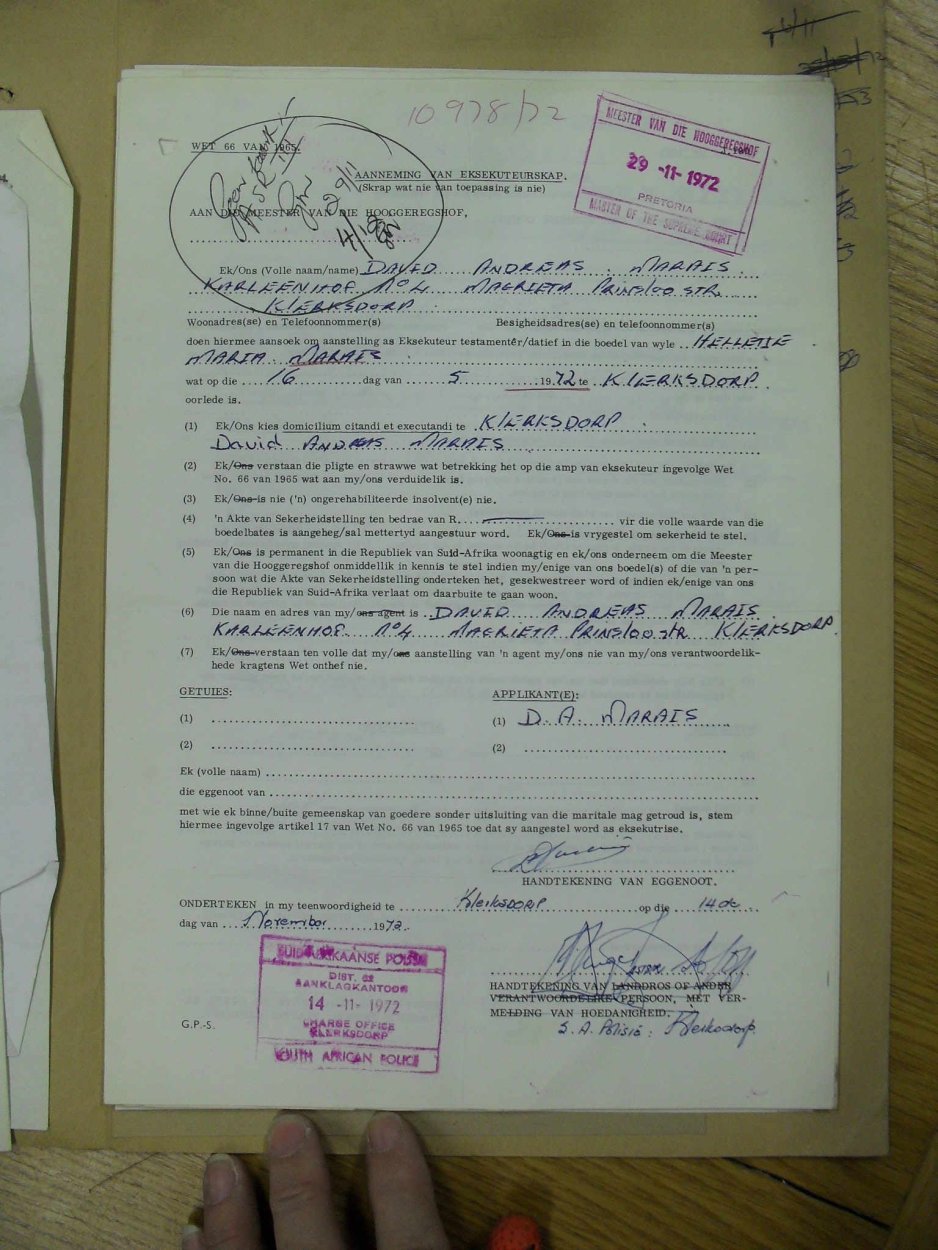 10978/72
WET 66 VAN 1965.
MEESTER VAN DIE HOOGGEREGSHOF
29 -11- 1972
PRETORIA
MASTER OF THE SUPREME COURT
AANNEMING VAN EKSEKUTEURSKAP.
(Skrap wat nie van toepassing is nie)
AAN DIE MEESTER VAN DIE HOOGGEREGSHOF,
29/11
Ek/Ons (Volle naam/name) DAVID ANDREAS MARAIS
KARLEENHOF No 4 MAGRIETA PRINSLOO STR.
KLERKSDORP
Woonadres(se) en Telefoonnommer(s) Besigheidsadres(se) en telefoonnommer(s)
doen hiermee aansoek om aanstelling as Eksekuteur testamentêr/datief in die boedel van wyle HELLETJIE
MARIA MARAIS
wat op die 16 dag van 5 1972 te KLERKSDORP
oorlede is.
(1) Ek/Ons kies domicilium citandi et executandi te KLERKSDORP
David ANDREAS MARAIS
(2) Ek/Ons verstaan die pligte en strawwe wat betrekking het op die amp van eksekuteur ingevolge Wet
No. 66 van 1965 wat aan my/ons verduidelik is.
(3) Ek/Ons is nie ('n) ongerehabiliteerde insolvent(e) nie.
(4) 'n Akte van Sekerheidstelling ten bedrae van R. vir die volle waarde van die
boedelbates is aangeheg/sal mettertyd aangestuur word. Ek/Ons is vrygestel om sekerheid te stel.
(5) Ek/Ons is permanent in die Republiek van Suid-Afrika woonagtig en ek/ons onderneem om die Meester
van die Hooggeregshof onmiddellik in kennis te stel indien my/enige van ons boedel(s) of die van 'n per-
soon wat die Akte van Sekerheidstelling onderteken het, gesekwestreer word of indien ek/enige van ons
die Republiek van Suid-Afrika verlaat om daarbuite te gaan woon.
(6) Die naam en adres van my/ons agent is DAVID ANDREAS MARAIS
KARLEENHOF No 4 MAGRIETA PRINSLOO str KLERKSDORP
(7) Ek/Ons verstaan ten volle dat my/ons aanstelling van 'n agent my/ons nie van my/ons verantwoordelik-
hede kragtens Wet onthef nie.
GETUIES: APPLIKANT(E):
(1) (1) D. A. MARAIS
(2) (2)
Ek (volle naam)
die eggenoot van
met wie ek binne/buite gemeenskap van goedere sonder uitsluiting van die maritale mag getroud is, stem
hiermee ingevolge artikel 17 van Wet No. 66 van 1965 toe dat sy aangestel word as eksekutrise.
HANDTEKENING VAN EGGENOOT.
ONDERTEKEN in my teenwoordigheid te KlerksDORP op die 14de
dag van November 1972.
SUID-AFRIKAANSE POLISIE
DIST. 62
AANKLAGKANTOOR
14 -11- 1972
CHARGE OFFICE
KLERKSDORP
SOUTH AFRICAN POLICE
HANDTEKENING VAN LANDDROS OF ANDER
VERANTWOORDELIKE PERSOON, MET VER-
MELDING VAN HOEDANIGHEID.
S. A. Polisie: Klerksdorp
G.P.-S.